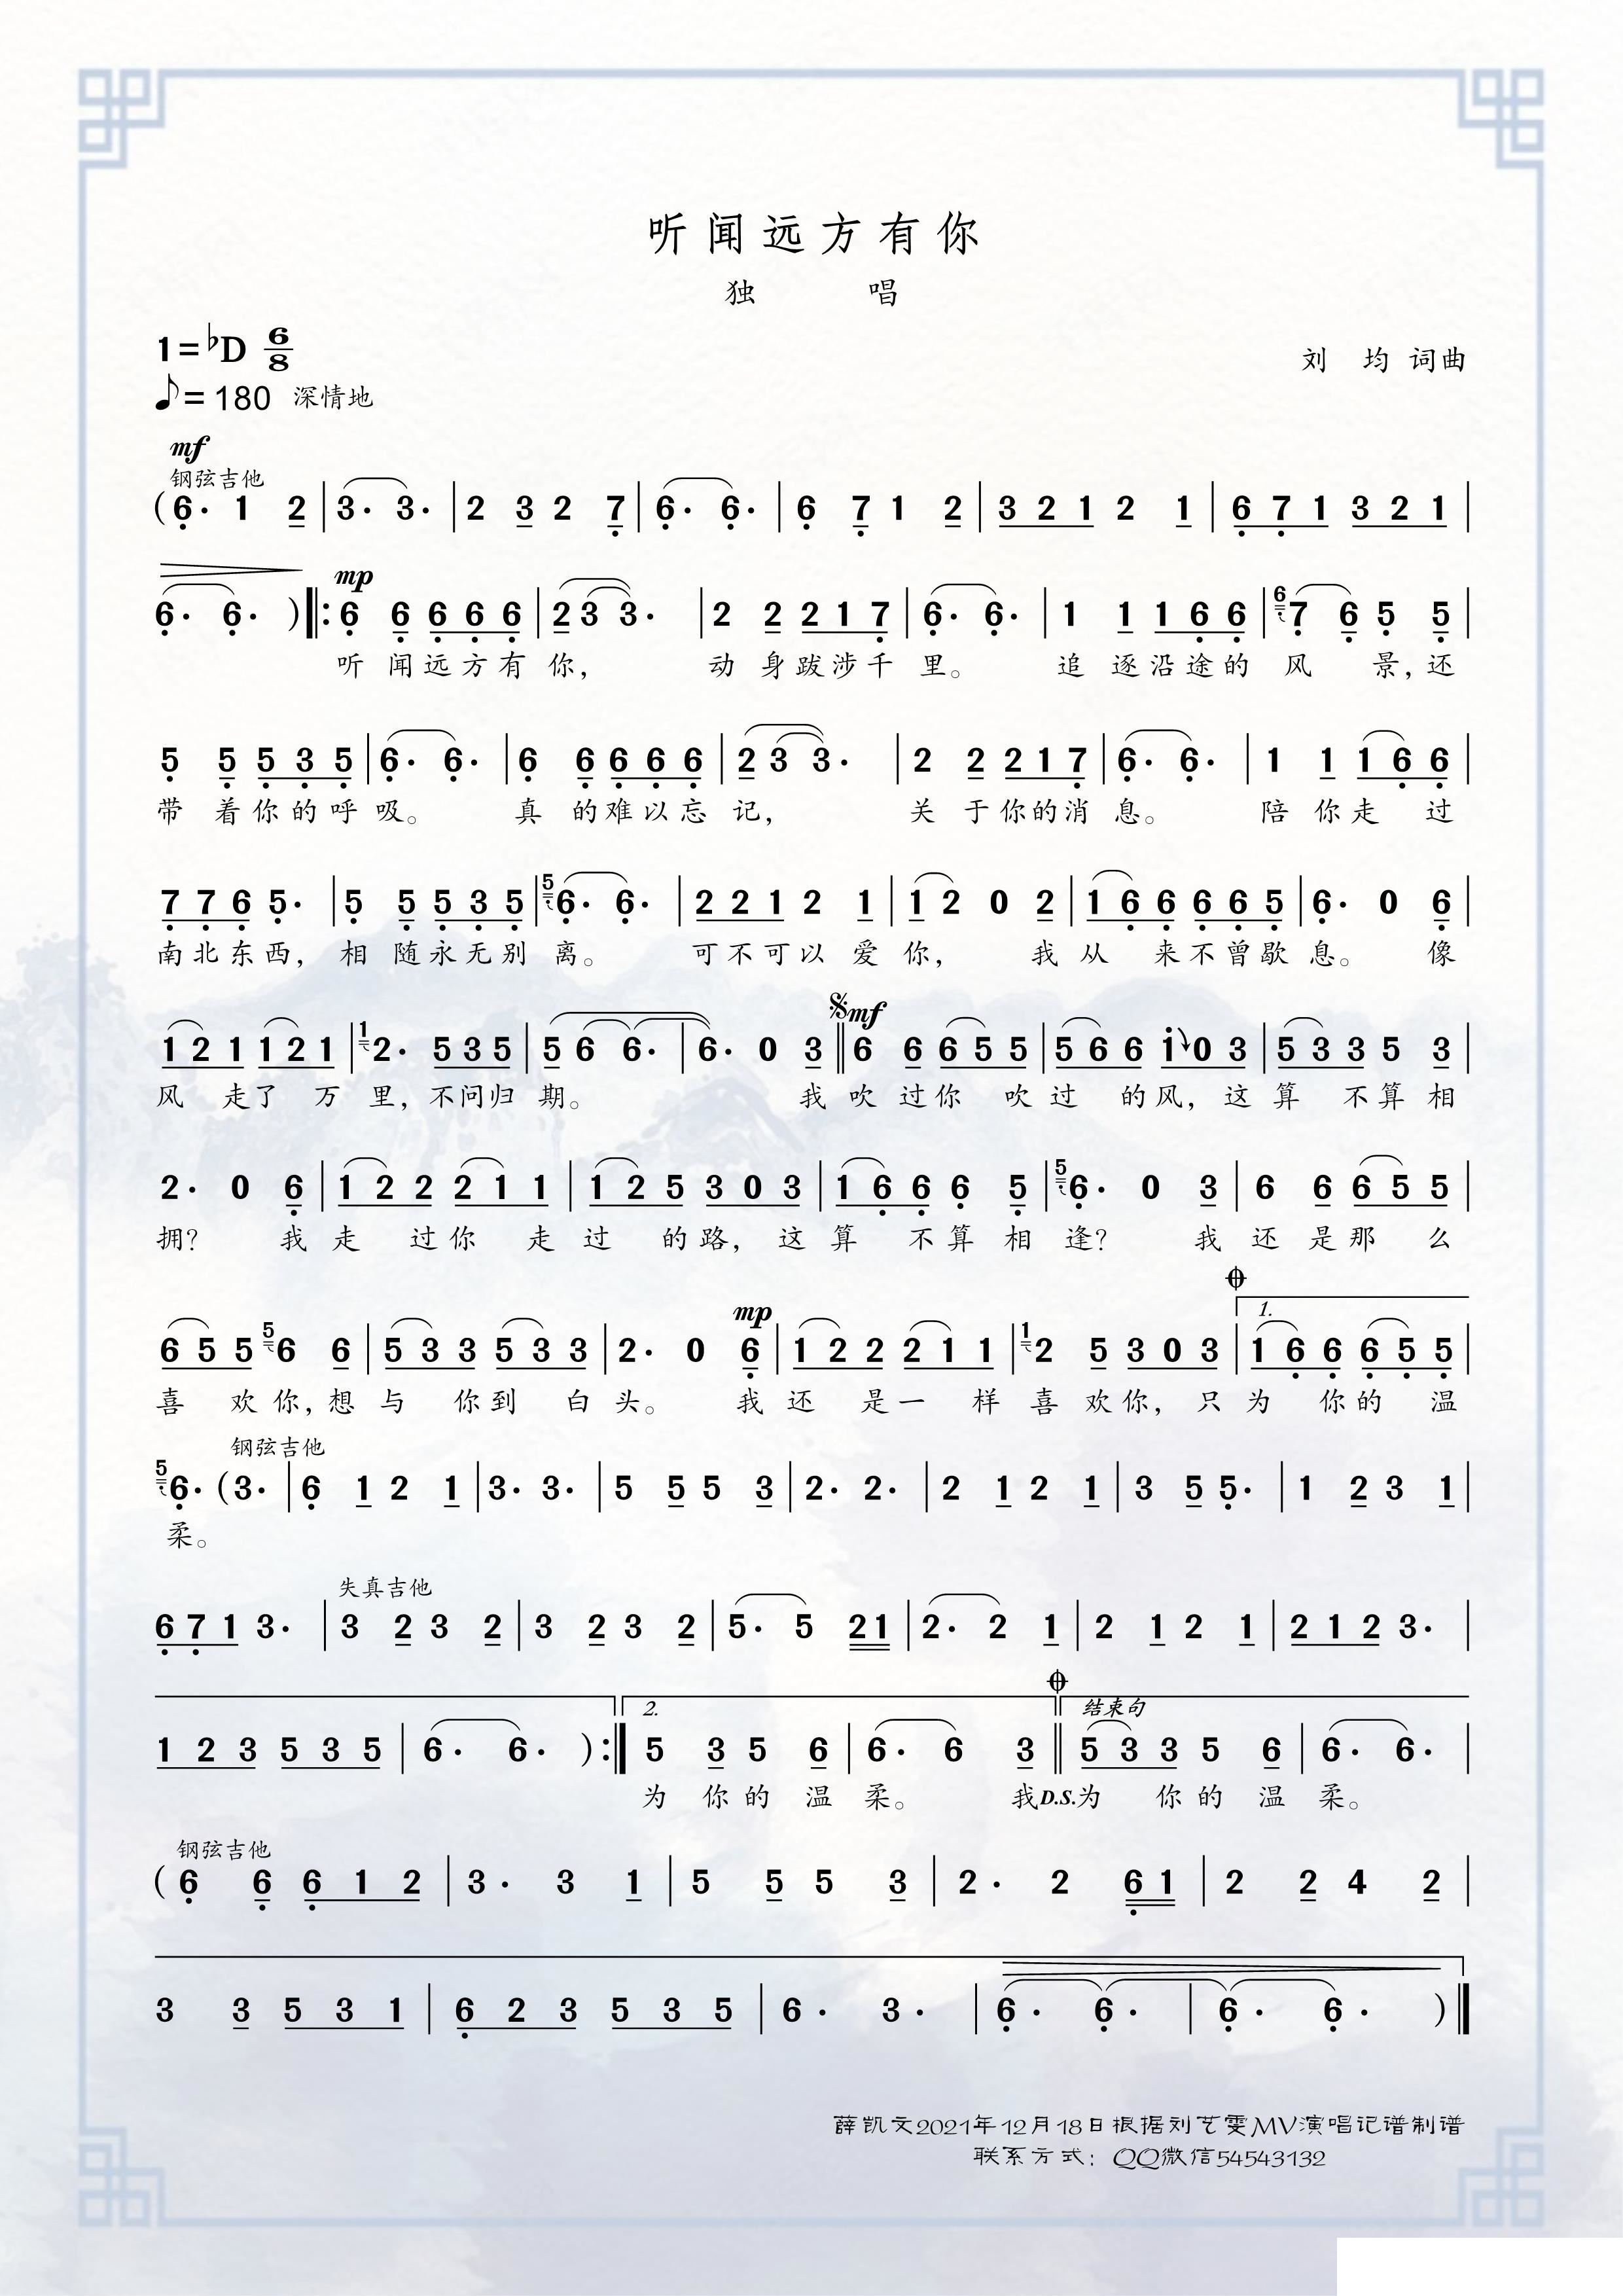 听闻远方有你
独 唱
1=♭D 6/8
刘 均 词曲
♪=180 深情地
mf
钢弦吉他
(6· 1 2 | 3· 3· | 2 3 2 7 | 6· 6· | 6 7 1 2 | 3 2 1 2 1 | 6 7 1 3 2 1 |
mp
6· 6· ) ‖: 6 6 6 6 6 | 2 3 3· | 2 2 2 1 7 | 6· 6· | 1 1 1 6 6 | 6 7 6 5 5 |
听 闻 远 方 有 你, 动 身 跋 涉 千 里。 追 逐 沿 途 的 风 景, 还
5 5 5 3 5 | 6· 6· | 6 6 6 6 6 | 2 3 3· | 2 2 2 1 7 | 6· 6· | 1 1 1 6 6 |
带 着 你 的 呼 吸。 真 的 难 以 忘 记, 关 于 你 的 消 息。 陪 你 走 过
7 7 6 5· | 5 5 5 3 5 | 5 6· 6· | 2 2 1 2 1 | 1 2 0 2 | 1 6 6 6 6 5 | 6· 0 6 |
南 北 东 西, 相 随 永 无 别 离。 可 不 可 以 爱 你, 我 从 来 不 曾 歇 息。 像
𝄋 mf
1 2 1 1 2 1 | 1 2· 5 3 5 | 5 6 6· | 6· 0 3 ‖ 6 6 6 5 5 | 5 6 6 1 0 3 | 5 3 3 5 3 |
风 走 了 万 里, 不 问 归 期。 我 吹 过 你 吹 过 的 风, 这 算 不 算 相
2· 0 6 | 1 2 2 2 1 1 | 1 2 5 3 0 3 | 1 6 6 6 5 | 5 6· 0 3 | 6 6 6 5 5 |
拥? 我 走 过 你 走 过 的 路, 这 算 不 算 相 逢? 我 还 是 那 么
mp 𝄌 1.
6 5 5 5 6 6 | 5 3 3 5 3 3 | 2· 0 6 | 1 2 2 2 1 1 | 1 2 5 3 0 3 | 1 6 6 6 5 5 |
喜 欢 你, 想 与 你 到 白 头。 我 还 是 一 样 喜 欢 你, 只 为 你 的 温
钢弦吉他
5 6· (3· | 6 1 2 1 | 3· 3· | 5 5 5 3 | 2· 2· | 2 1 2 1 | 3 5 5· | 1 2 3 1 |
柔。
失真吉他
6 7 1 3· | 3 2 3 2 | 3 2 3 2 | 5· 5 2 1 | 2· 2 1 | 2 1 2 1 | 2 1 2 3· |
2. 𝄌 结束句
1 2 3 5 3 5 | 6· 6· ) :‖ 5 3 5 6 | 6· 6 3 ‖ 5 3 3 5 6 | 6· 6· |
为 你 的 温 柔。 我 D.S. 为 你 的 温 柔。
钢弦吉他
( 6 6 6 1 2 | 3· 3 1 | 5 5 5 3 | 2· 2 6 1 | 2 2 4 2 |
3 3 5 3 1 | 6 2 3 5 3 5 | 6· 3· | 6· 6· | 6· 6· ) ‖
薛凯文2021年12月18日根据刘艺雯MV演唱记谱制谱
联系方式：QQ微信54543132